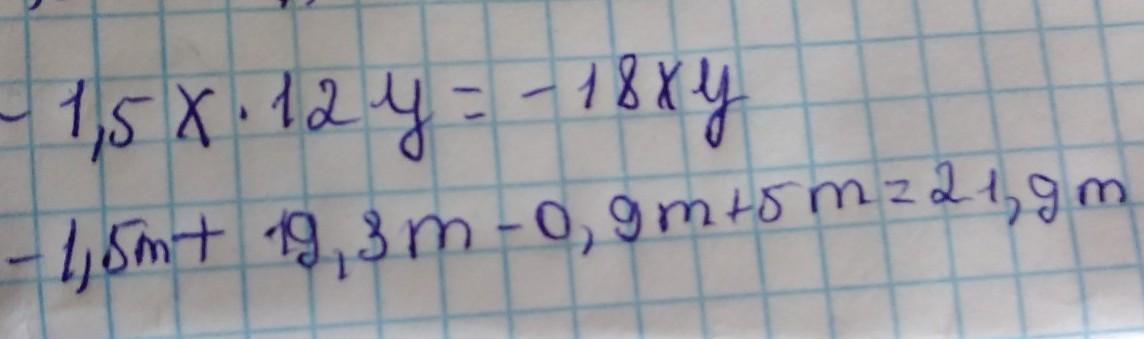 - 1,5 x · 12 y = - 18xy
- 1,5m + 19,3m - 0,9m + 5m = 21,9m